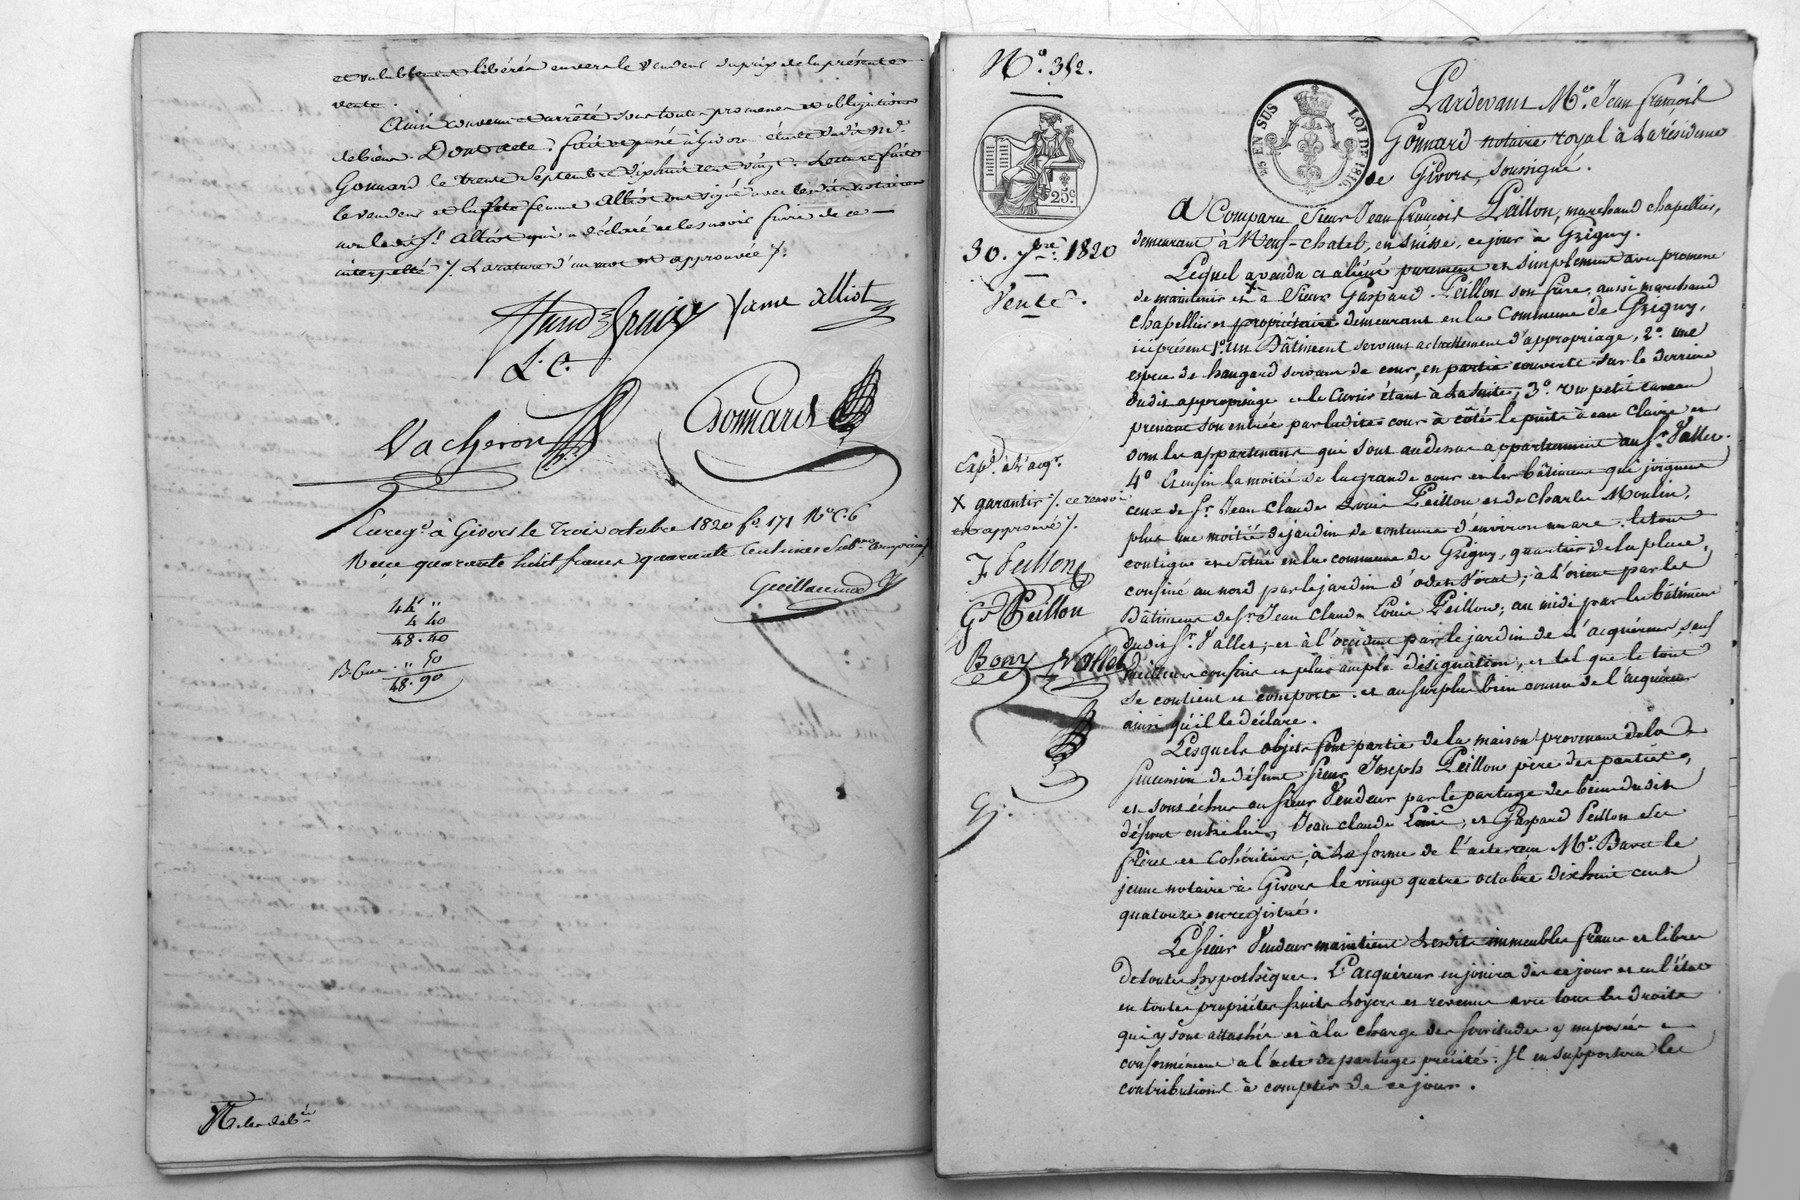 et valablement libéré envers le vendeur du prix de la présente
vente.
Ainsi convenu et arrêté sous toutes promesses et obligations
de biens. Dont acte, fait et passé à Givors étude dudit Me.
Gonnard le trente Septembre dix huit cent vingt. Lecture faite
le vendeur et la femme Alliot ont signé avec lesdits notaires
non ledit Sr. Alliot qui a déclaré ne le savoir faire de ce
interpellé ./. La rature d'un mot est approuvée ./.
femme Alliot
L. C.
Vacheron
Gonnard
Enreg. à Givors le Trois octobre 1820 fo. 171 Ro C. 6
Reçu quarante huit francs quarante Centimes Subon. Compris
Guillaumod
44 "
4 40
48. 40
" 50
48. 90
No. 352.
25c
25 EN SUS
LOI DE 1816.
30. 7bre. 1820
Vente.
Expd. à l'acqr.
X garantir ./. ce renvoi
est approuvé ./.
F Peillon
Gd Peillon
Bony
Vallet
G.
Pardevant Me. Jean François
Gonnard notaire royal à la résidence
de Givors, soussigné.
A Comparu Sieur Jean françois Peillon, marchand chapellier,
demeurant à Neuf-chatel, en Suisse, ce jour à Grigny.
Lequel a vendu et aliéné purement et simplement avec promesse
de maintenir et X à Sieur Gaspard Peillon son frère, aussi marchand
chapellier et propriétaire demeurant en la Commune de Grigny,
ici présent 1o. un Bâtiment servant actuellement d'appropriage, 2o. une
espece de hangard servant de cour, en partie couverte sur le derrière
dudit appropriage et le Cuvier étant à la suite, 3o. un petit caveau
prenant son entrée par ladite cour à côté le puits à eau claire et
dont les appartenans qui sont au dessus appartiennent au Sr. Vallet.
4o Et enfin la moitié de la grande cour et les bâtimens qui joignent
ceux de Sr. Jean Claude Louis Peillon et de Charles Moulin,
plus une moitié de jardin de contenue d'environ un are. le tout
contigu et situé en la commune de Grigny, quartier de la place,
confiné au nord par le jardin d'; à l'orient par les
Bâtimens de Sr. Jean Claude Louis Peillon; au midi par les bâtimens
dudit Sr. Vallet; et à l'occident par le jardin de l'acquéreur, sauf
meilleurs confins et plus ample désignation, et tel que le tout
se contient et comporte. et au surplus bien connu de l'acquéreur
ainsi qu'il le déclare.
Lesquels objets font partie de la maison provenant de la
succession de défunt Sieur Joseph Peillon père des parties,
et sont échus au Sieur Vendeur par le partage des biens dudit
défunt entre lui, Jean claude Louis, et Gaspard Peillon ses
frères et Cohéritiers, à la forme de l'acte reçu Me. le
jeune notaire à Givors le vingt quatre octobre dix huit cent
quatorze, enregistré.
Le Sieur Vendeur maintient lesdits immeubles francs et libres
de toutes hypothèques. L'acquéreur en jouira dès ce jour et en l'état
en toutes propriétés fruits loyers et revenus avec tous les droits
qui y sont attachés et à la charge des servitudes y imposées
conformément a l'acte de partage précité. Il en supportera les
contributions à compter de ce jour.